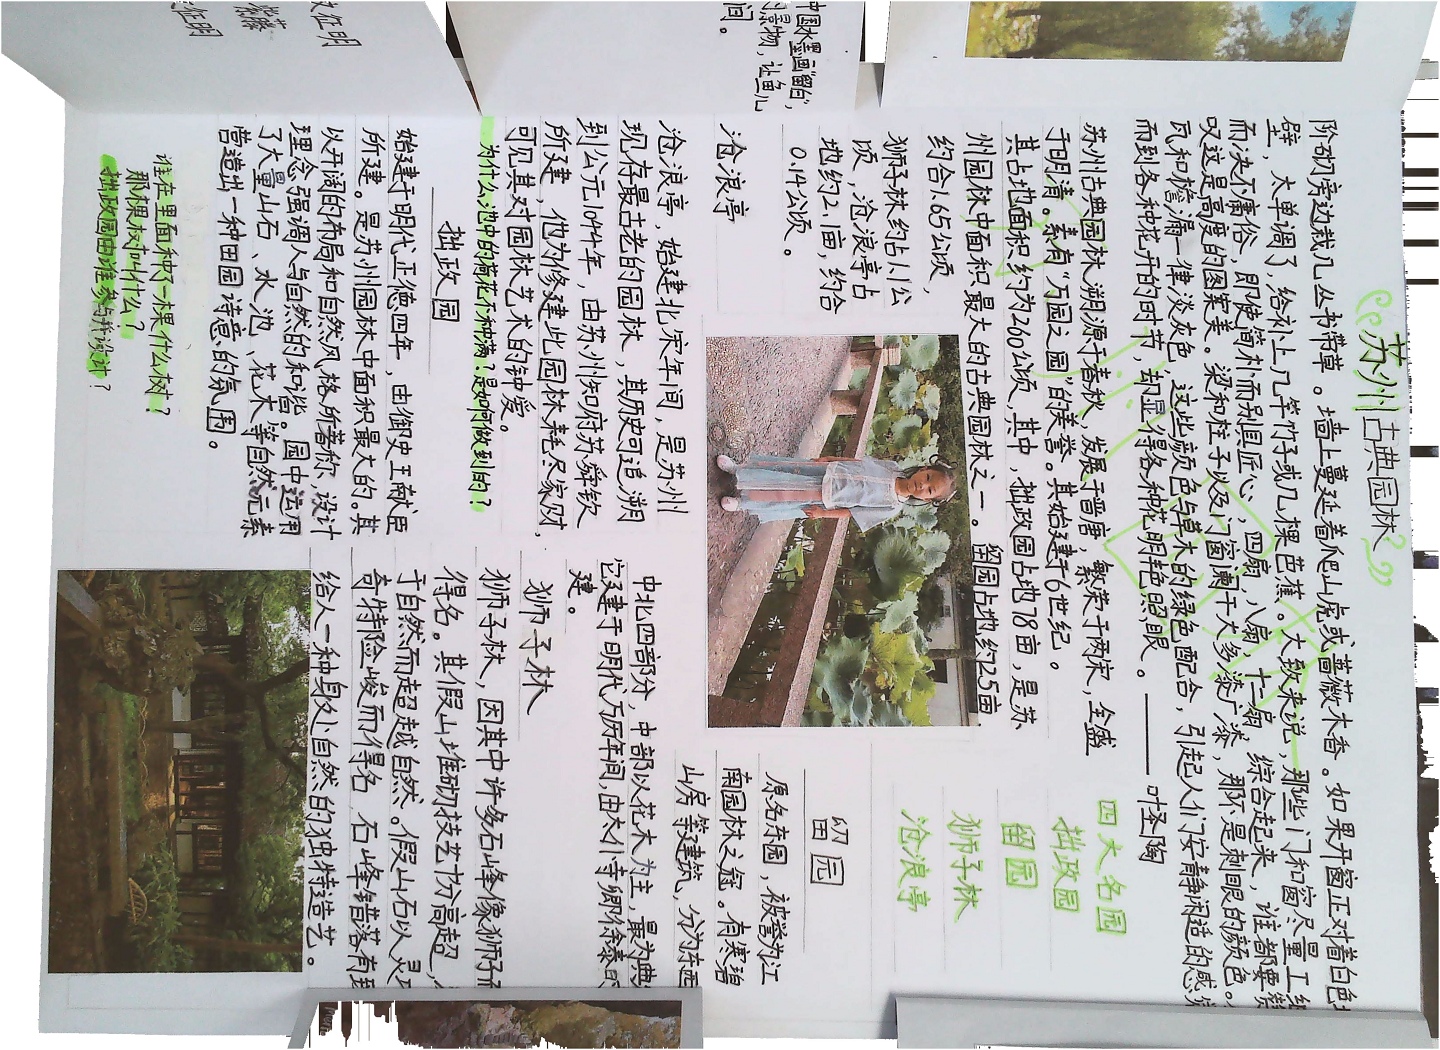 苏州古典园林
阶砌旁边栽几丛书带草。墙上蔓延着爬山虎或蔷薇木香。如果开窗正对着白色
壁，太单调了，给补上几竿竹子或几棵芭蕉。大致来说，那些门和窗尽量工细
而决不庸俗，即使简朴而别具匠心，四扇，八扇，十二扇，综合起来，谁都要赞
叹这是高度的图案美。梁和柱子以及门窗阑干大多漆广漆，那不是刺眼的颜色。
瓦和檐漏一律淡灰色，这些颜色与草木的绿色配合，引起人们安静闲适的感觉
而到各种花开的时节，却显得各种花明艳照眼。——叶圣陶
苏州古典园林溯源于春秋，发展于晋唐，繁荣于两宋，全盛
于明清。素有“万园之园”的美誉。其始建于6世纪。
其占地面积约为260公顷，其中，拙政园占地78亩，是苏
州园林中面积最大的古典园林之一。留园占地约25亩
约合1.65公顷，
狮子林约占1.1公
顷，沧浪亭占
地约2.1亩，约合
0.14公顷。
四大名园
拙政园
留园
狮子林
沧浪亭
沧浪亭
沧浪亭，始建北宋年间，是苏州
现存最古老的园林，其历史可追溯
到公元1044年，由苏州知府苏舜钦
所建，他为修建此园林耗尽家财，
可见其对园林艺术的钟爱。
为什么，池中的荷花不种满？是如何做到的？
拙政园
始建于明代正德四年，由御史王献臣
所建。是苏州园林中面积最大的。其
以开阔的布局和自然风格所著称，设计
理念强调人与自然的和谐。园中运用
了大量山石、水池、花木等自然元素
营造出一种田园诗意的氛围。
谁在里面种了一棵什么树？
那棵树叫什么？
拙政园由谁参与并设计？
留园
原名东园，被誉为江
南园林之冠。有寒碧
山房等建筑，分为东西
中北四部分，中部以花木为主，最为典
它建于明代万历年间，由太仆寺卿徐泰时
建。
狮子林
狮子林，因其中许多石峰像狮子而
得名。其假山堆砌技艺十分高超，
于自然而超越自然。假山石以灵
奇特险峻而得名，石峰错落有致
给人一种身处自然的独特造艺。
中国水墨画“留白”，
景物，让鱼儿
间。
文征明
紫藤
文征明